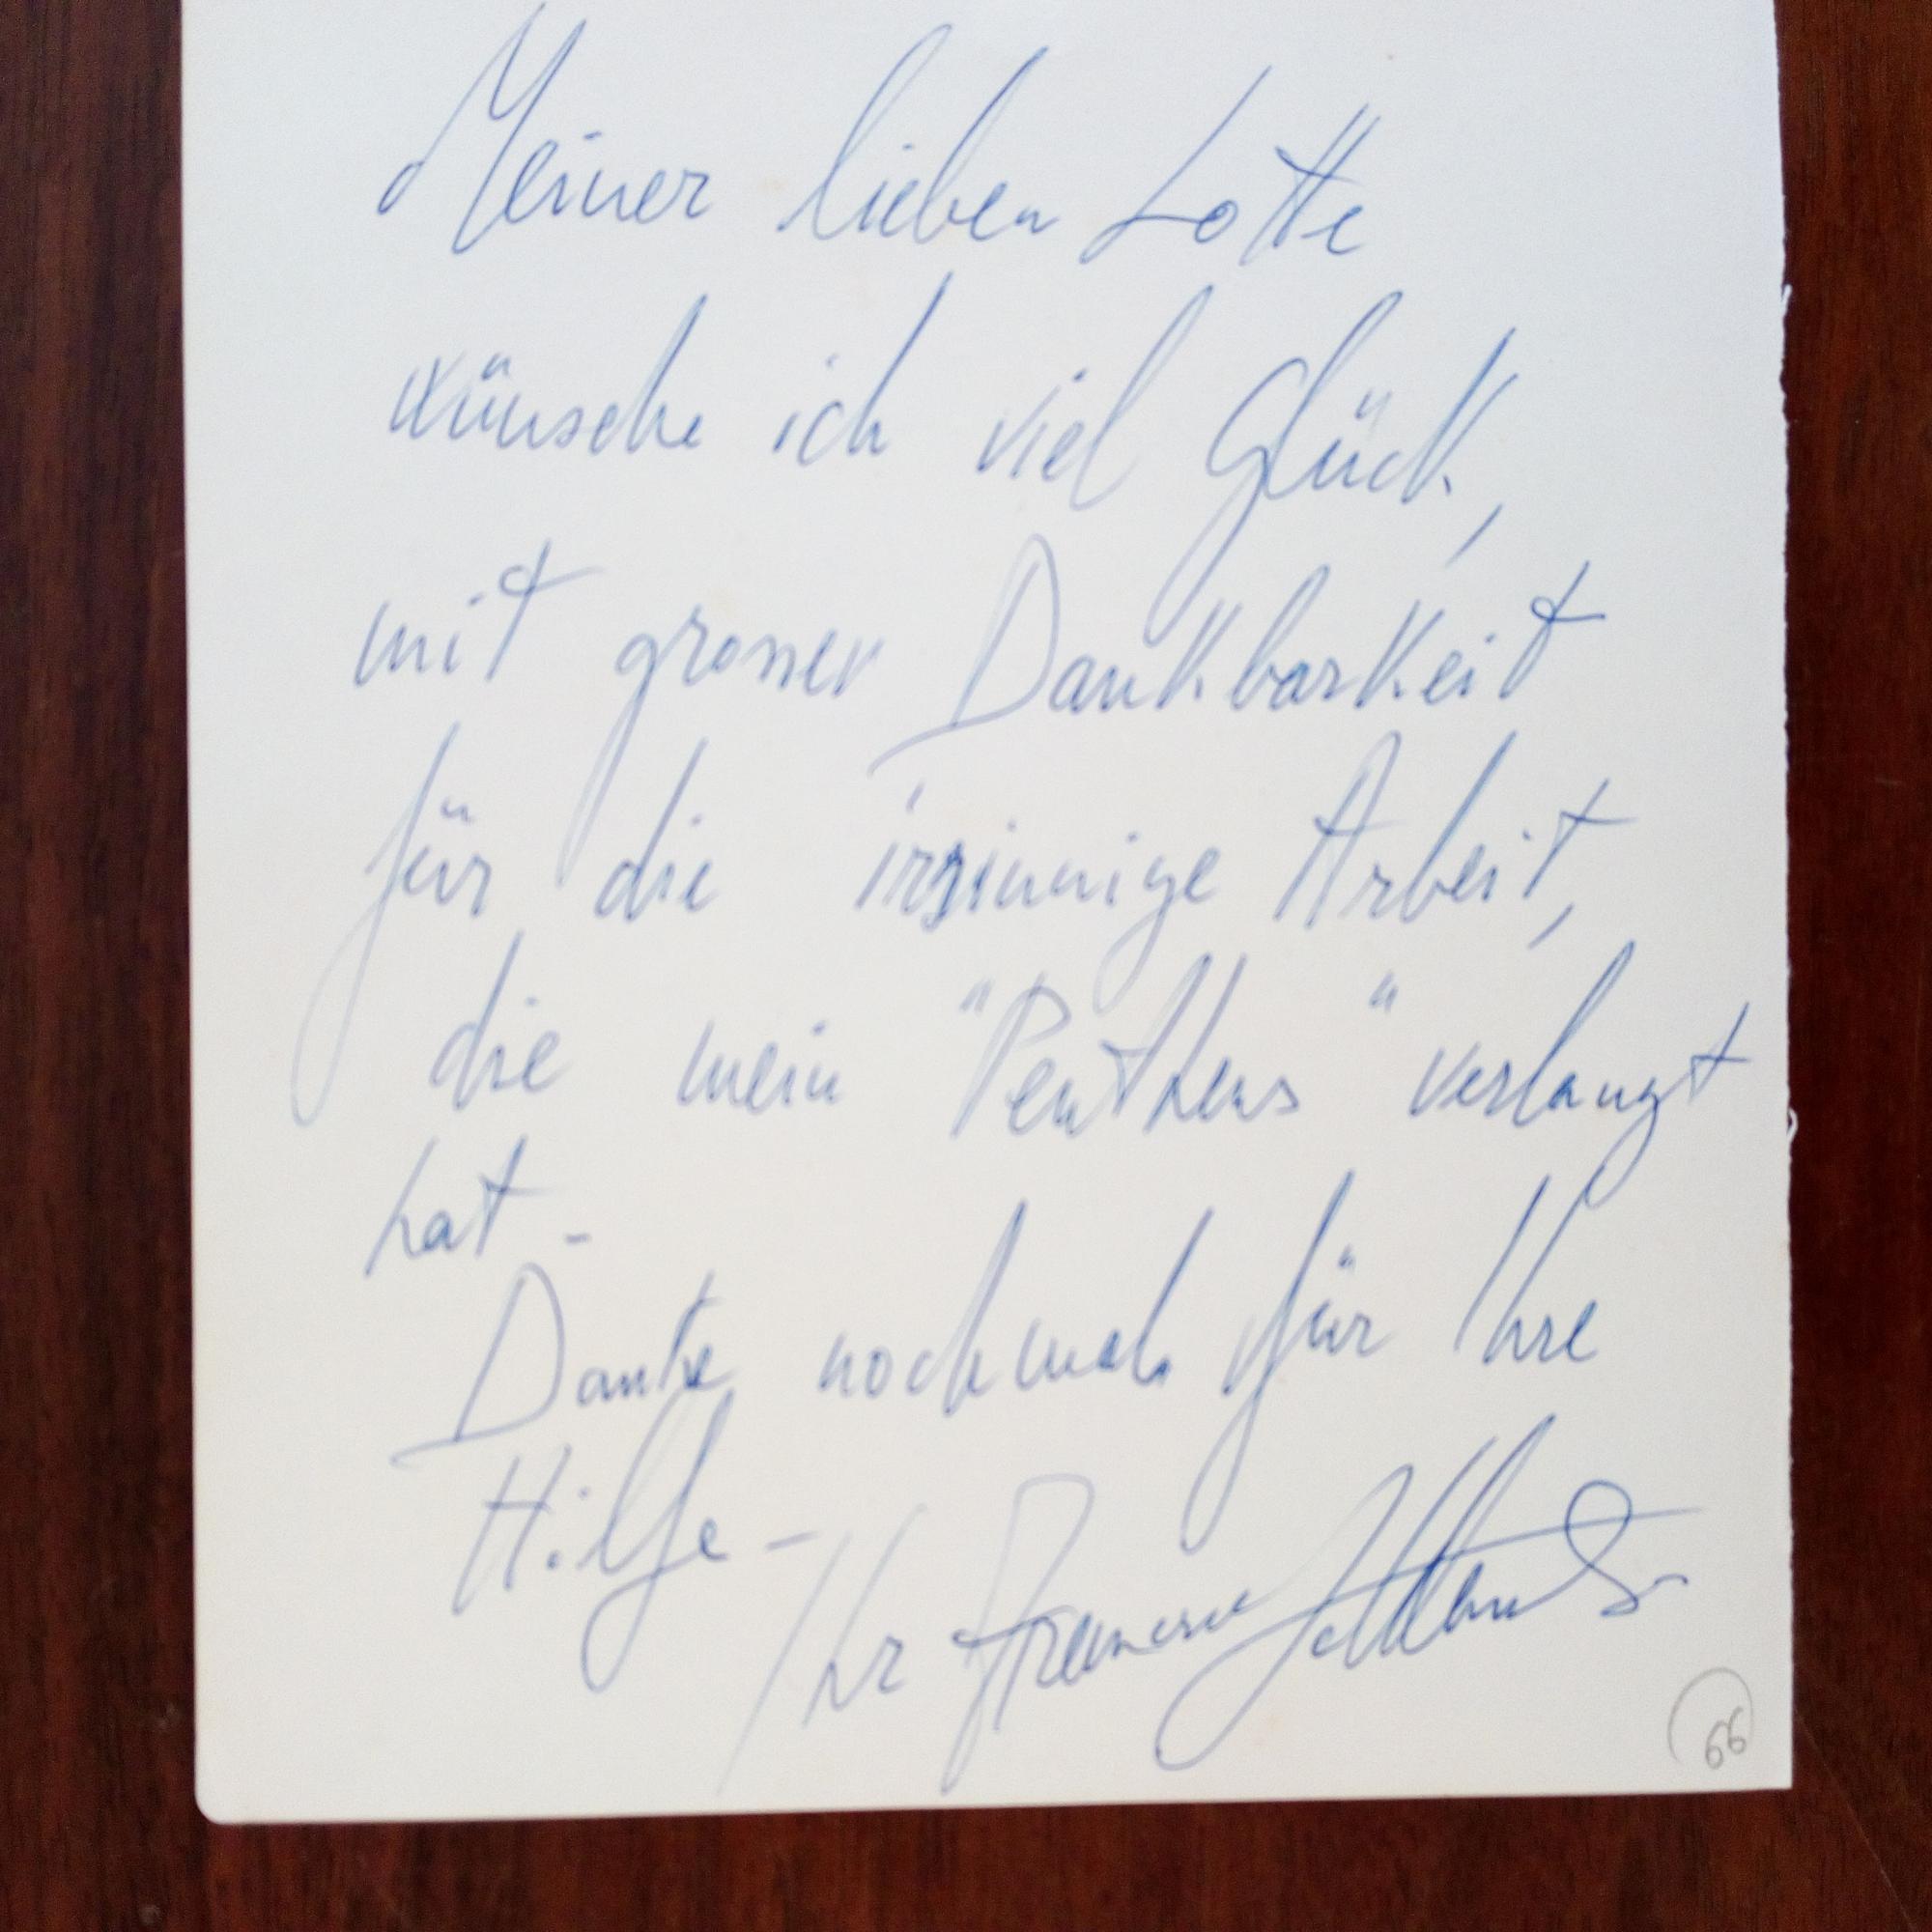 Meiner lieben Lotte
wünsche ich viel Glück,
mit grosser Dankbarkeit
für die irrsinnige Arbeit,
die mein "Pentheus" verlangt
hat -
Danke nochmals für Ihre
Hilfe -
Ihr
66